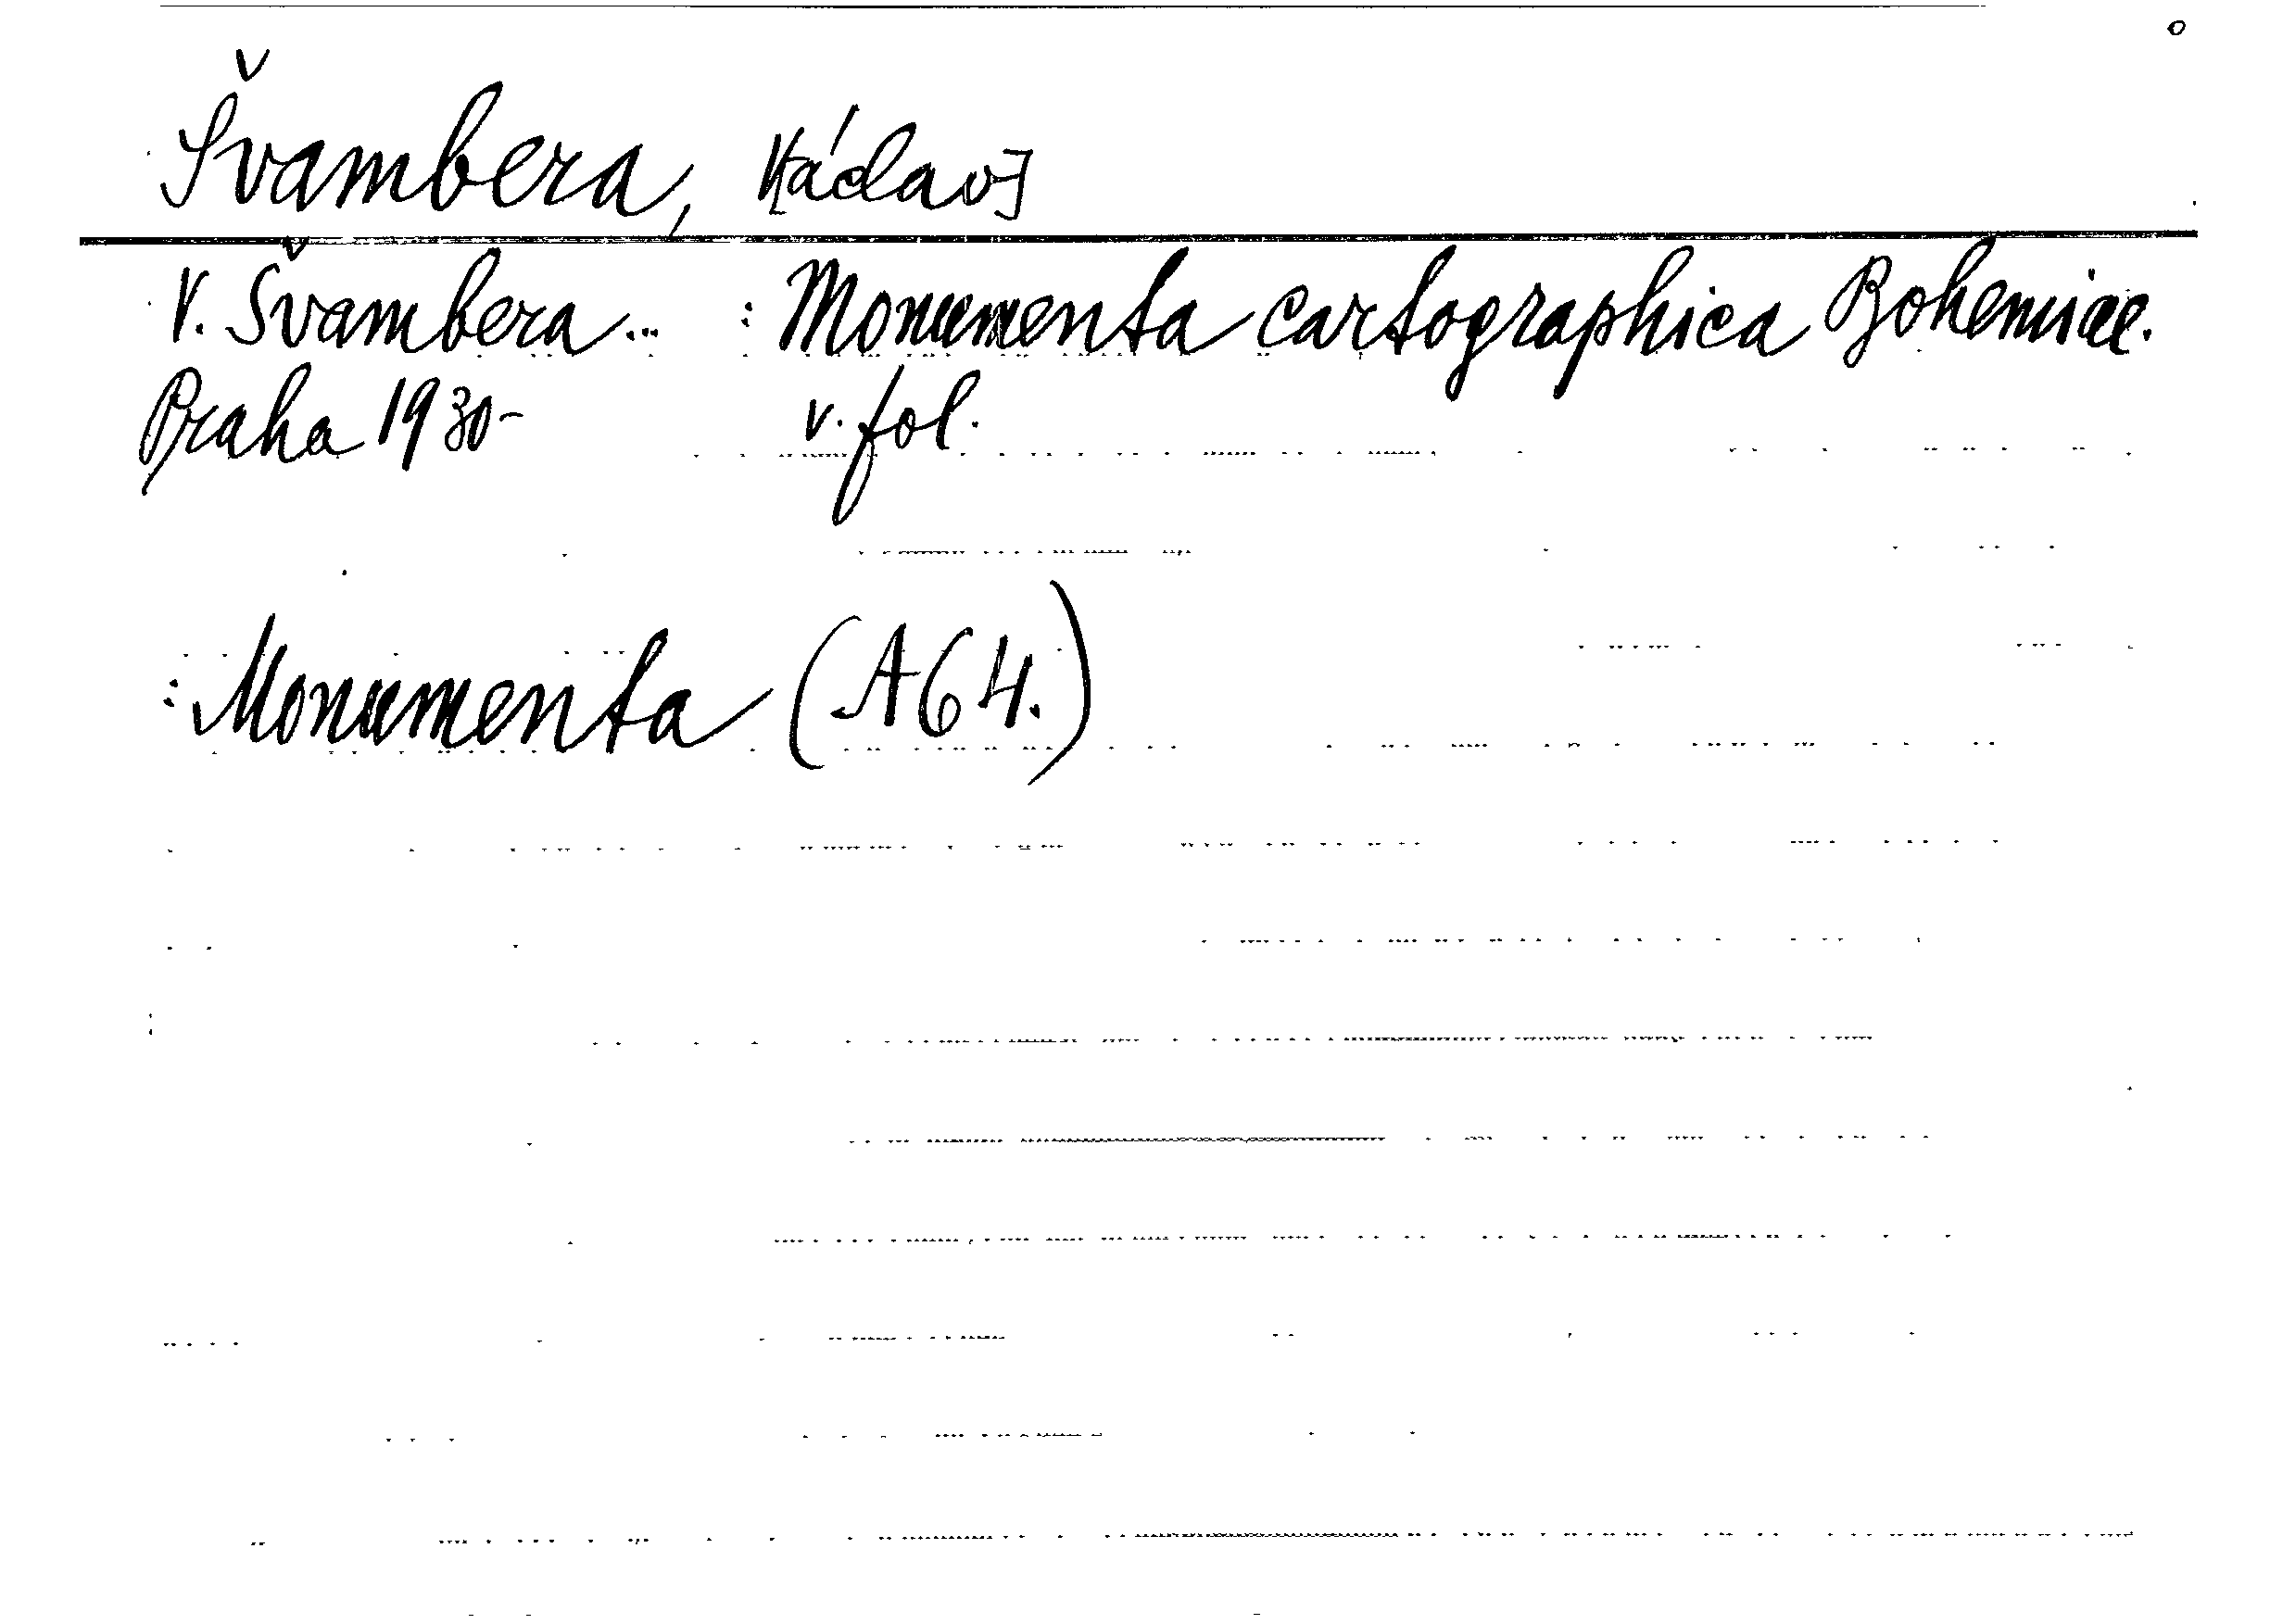 Švambera, V[áclav]
V. Švambera... : Monumenta cartographica Bohemiae.
Praha 1930- v. fol.
: Monumenta (A64.)